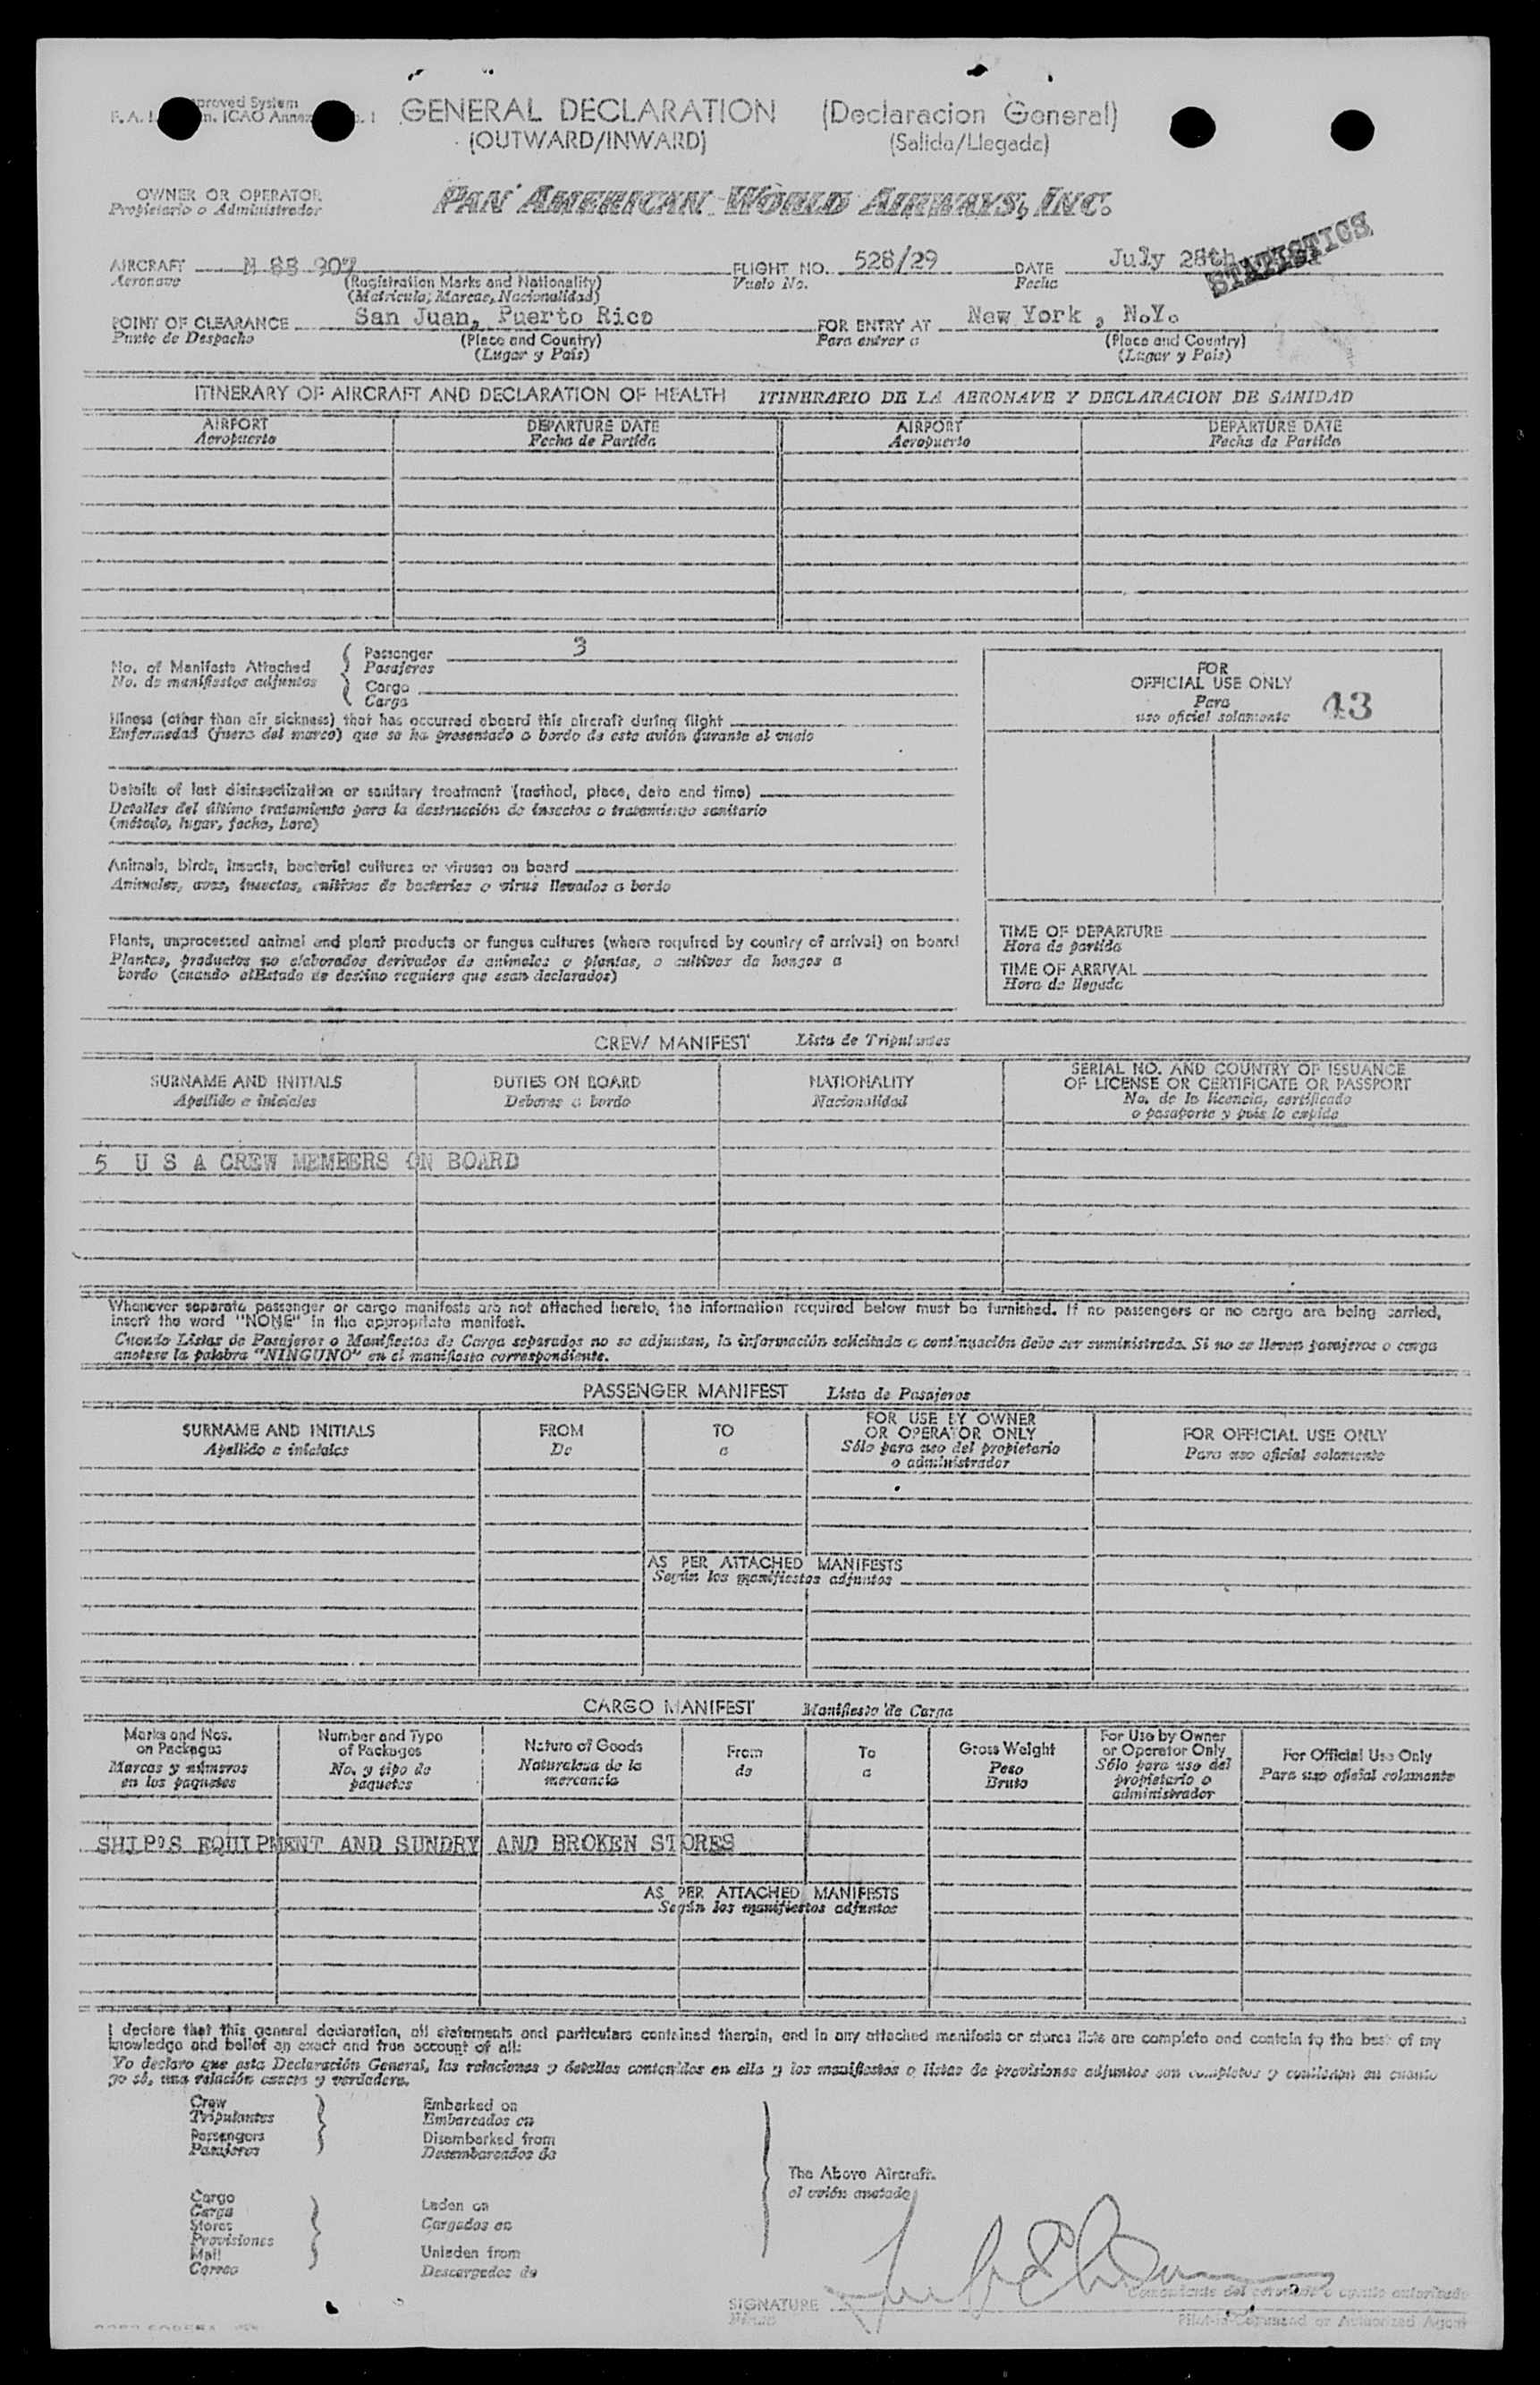 proved System
F. A. L. n. ICAO Annex . 1
GENERAL DECLARATION (Declaracion General)
(OUTWARD/INWARD) (Salida/Llegada)
OWNER OR OPERATOR
Propietario o Administrador
PAN AMERICAN WORLD AIRWAYS, INC.
STATISTICS
AIRCRAFT N 88 907 FLIGHT NO. 528/29 DATE July 28th
Aeronave (Registration Marks and Nationality) Vuelo No. Fecha
(Matricula, Marcas, Nacionalidad)
POINT OF CLEARANCE San Juan, Puerto Rico FOR ENTRY AT New York , N.Y.
Punto de Despacho (Place and Country) Para entrar a (Place and Country)
(Lugar y País) (Lugar y País)
ITINERARY OF AIRCRAFT AND DECLARATION OF HEALTH ITINERARIO DE LA AERONAVE Y DECLARACION DE SANIDAD
AIRPORT DEPARTURE DATE AIRPORT DEPARTURE DATE
Aeropuerto Fecha de Partida Aeropuerto Fecha de Partida
No. of Manifests Attached
No. de manifiestos adjuntos
Passenger 3
Pasajeros
Cargo
Carga
FOR
OFFICIAL USE ONLY
Para
uso oficial solamente 43
Illness (other than air sickness) that has occurred aboard this aircraft during flight
Enfermedad (fuera del mareo) que se ha presentado a bordo de este avión durante el vuelo
Details of last disinsectization or sanitary treatment (method, place, date and time)
Detalles del último tratamiento para la destrucción de insectos o tratamiento sanitario
(método, lugar, fecha, hora)
Animals, birds, insects, bacterial cultures or viruses on board
Animales, aves, insectos, cultivos de bacterias o virus llevados a bordo
Plants, unprocessed animal and plant products or fungus cultures (where required by country of arrival) on board
Plantas, productos no elaborados derivados de animales o plantas, o cultivos de hongos a
bordo (cuando elEstado de destino requiere que sean declarados)
TIME OF DEPARTURE
Hora de partida
TIME OF ARRIVAL
Hora de llegada
CREW MANIFEST Lista de Tripulantes
SURNAME AND INITIALS DUTIES ON BOARD NATIONALITY SERIAL NO. AND COUNTRY OF ISSUANCE
OF LICENSE OR CERTIFICATE OR PASSPORT
Apellido e iniciales Deberes a bordo Nacionalidad No. de la licencia, certificado
o pasaporte y país lo expide
5 U S A CREW MEMBERS ON BOARD
Whenever separate passenger or cargo manifests are not attached hereto, the information required below must be furnished. If no passengers or no cargo are being carried,
insert the word "NONE" in the appropriate manifest.
Cuando Listas de Pasajeros o Manifiestos de Carga separados no se adjuntan, la información solicitada a continuación debe ser suministrada. Si no se llevan pasajeros o carga
anotese la palabra "NINGUNO" en el manifiesto correspondiente.
PASSENGER MANIFEST Lista de Pasajeros
SURNAME AND INITIALS FROM TO FOR USE BY OWNER
OR OPERATOR ONLY FOR OFFICIAL USE ONLY
Apellido e iniciales De a Sólo para uso del propietario
o administrador Para uso oficial solamente
AS PER ATTACHED MANIFESTS
Según los manifiestos adjuntos
CARGO MANIFEST Manifiesto de Carga
Marks and Nos.
on Packages
Marcas y números
en los paquetes
Number and Type
of Packages
No. y tipo de
paquetes
Nature of Goods
Naturalesa de la
mercancia
From
de
To
a
Gross Weight
Peso
Bruto
For Use by Owner
or Operator Only
Sólo para uso del
propietario o
administrador
For Official Use Only
Para uso oficial solamente
SHIP'S EQUIPMENT AND SUNDRY AND BROKEN STORES
AS PER ATTACHED MANIFESTS
Según los manifiestos adjuntos
I declare that this general declaration, all statements and particulars contained therein, and in any attached manifests or stores lists are complete and contain to the best of my
knowledge and belief an exact and true account of all:
Yo declaro que esta Declaración General, las relaciones y detalles contenidos en ella y los manifiestos o listas de provisiones adjuntos son completos y contienen en cuanto
yo sé, una relación exacta y verdadera.
Crew
Tripulantes
Passengers
Pasajeros
Embarked on
Embarcados en
Disembarked from
Desembarcados de
The Above Aircraft.
el avión anotado
Cargo
Carga
Stores
Provisiones
Mail
Correo
Laden on
Cargados en
Unladen from
Descargados de
SIGNATURE
Firma
Comandante del aeronave o agente autorizado
Pilot-in-Command or Authorized Agent